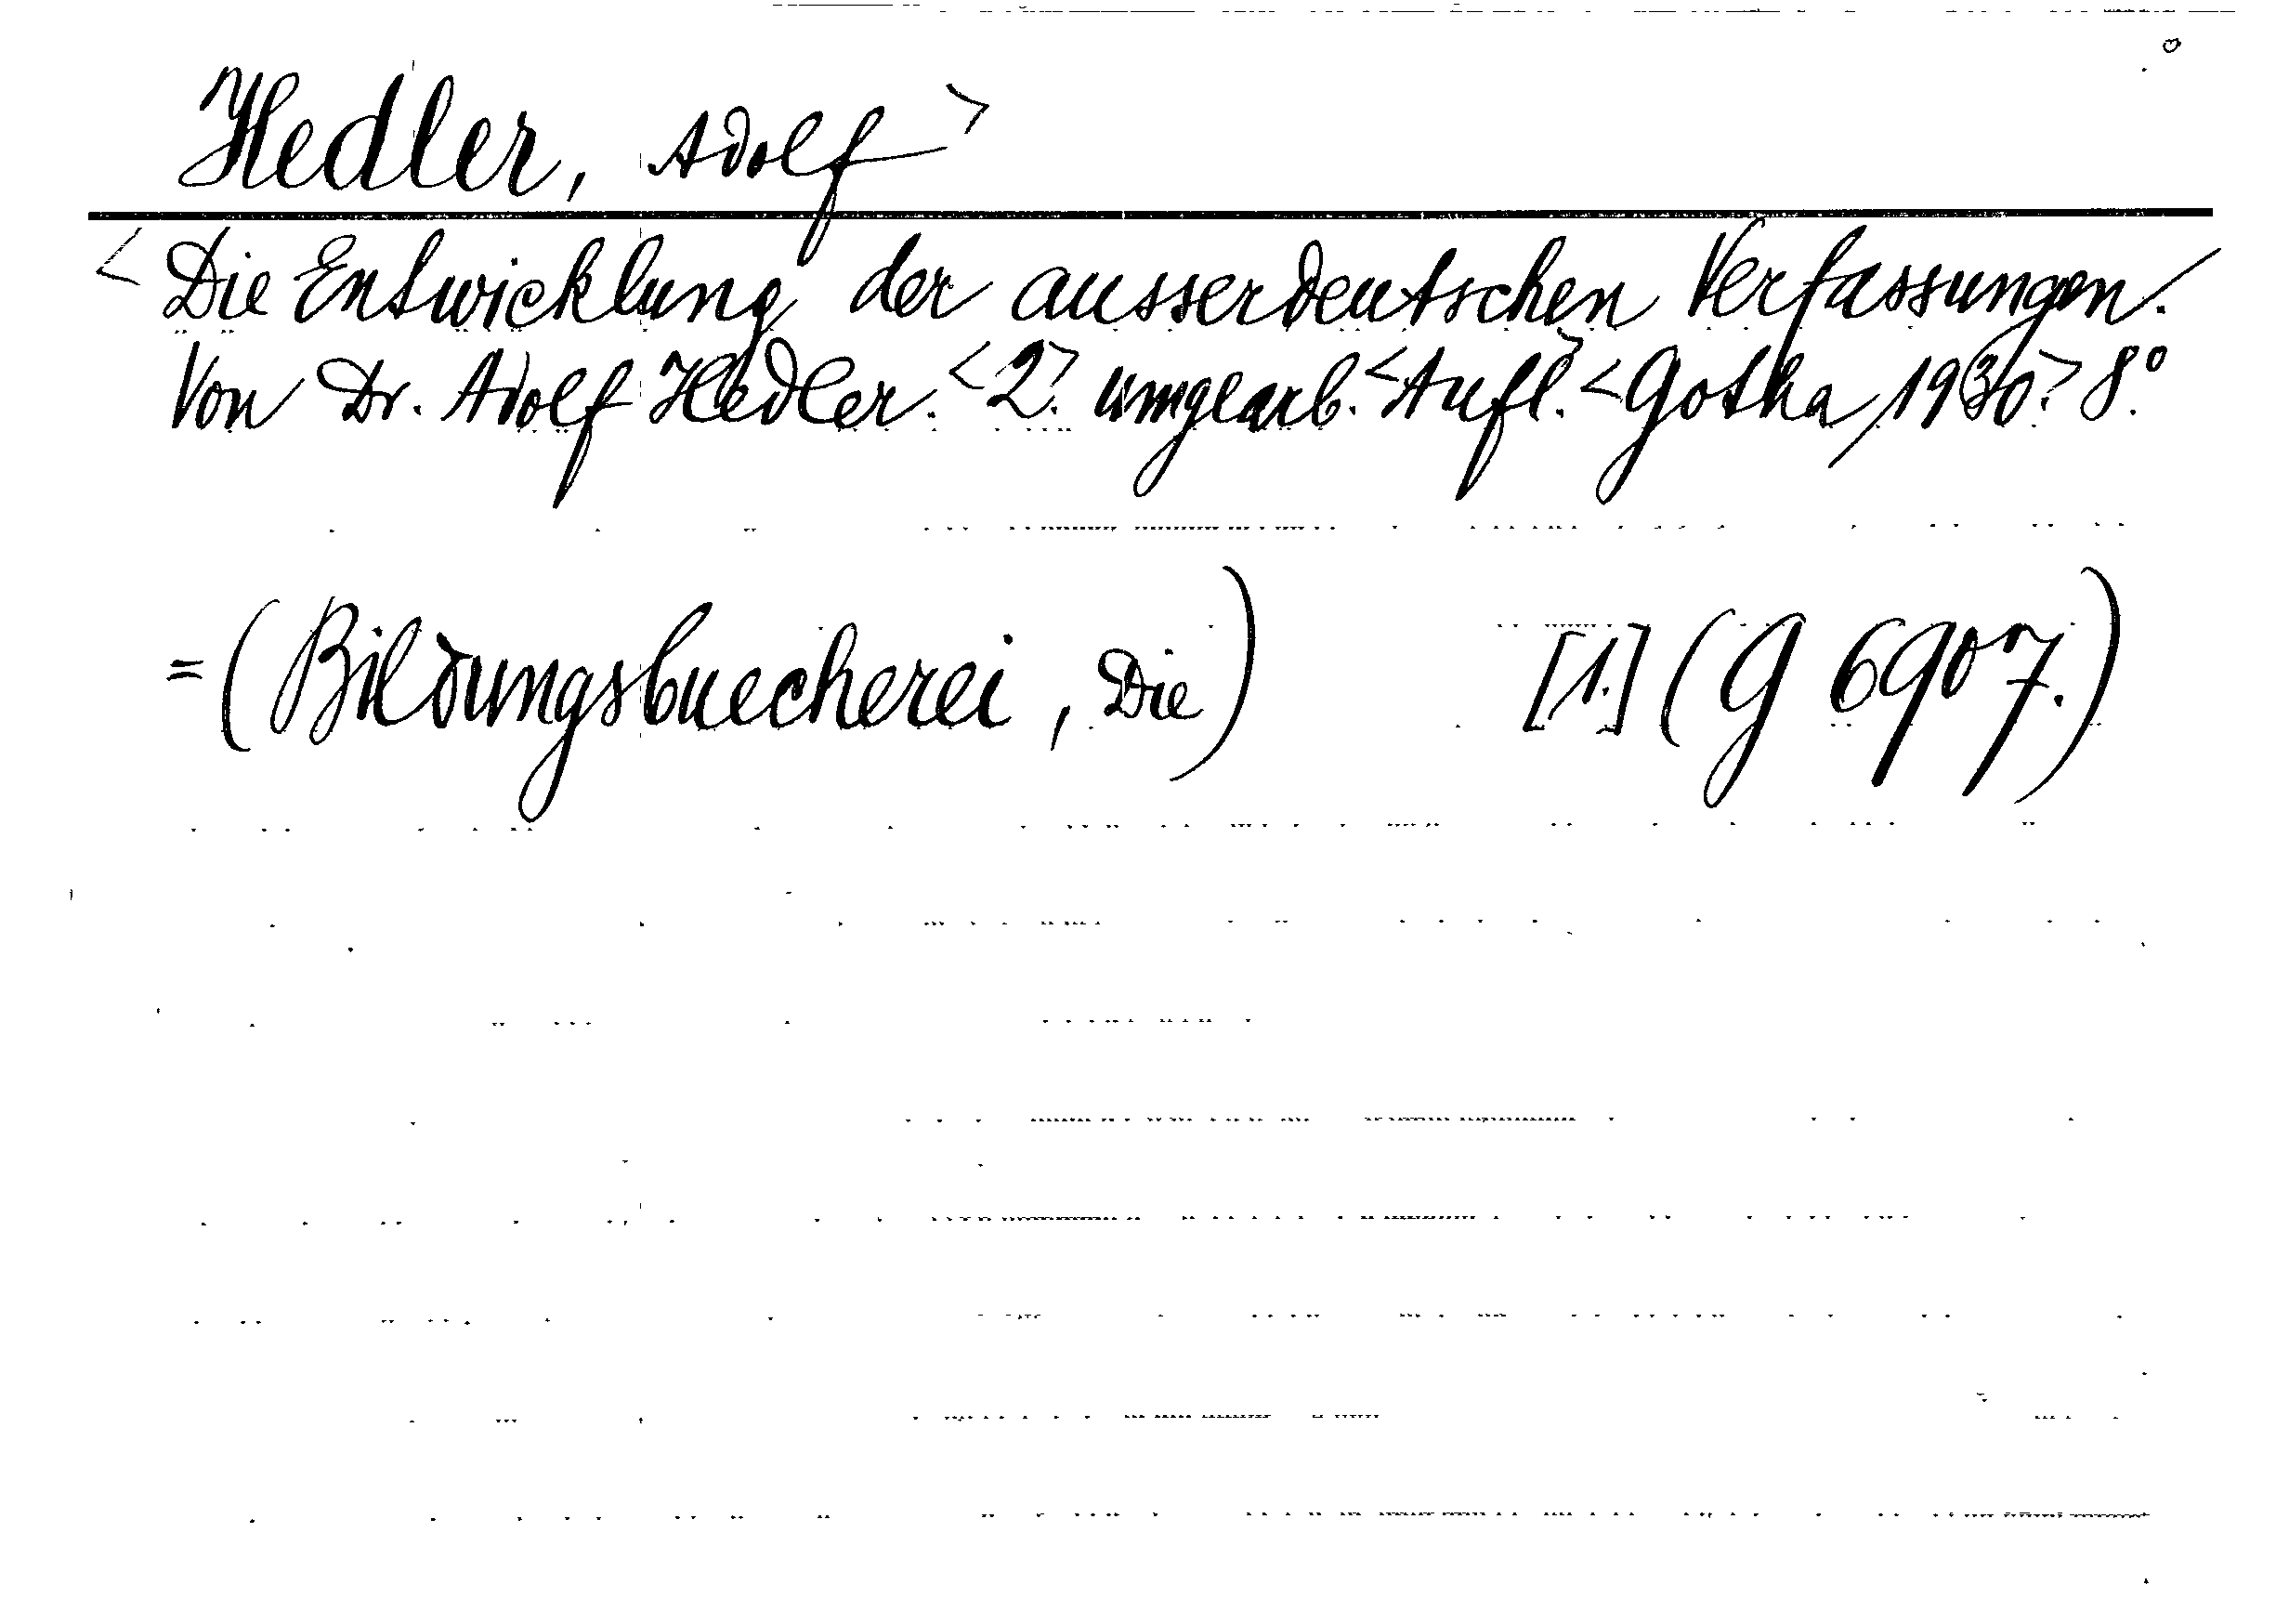 Hedler, Adolf>
<Die Entwicklung der ausserdeutschen Verfassungen.
Von Dr. Adolf Hedler. <2.> umgearb. <Aufl.> <Gotha, 1930.> 8°.
= (Bildungsbuecherei, Die) [1.] (G 6907.)